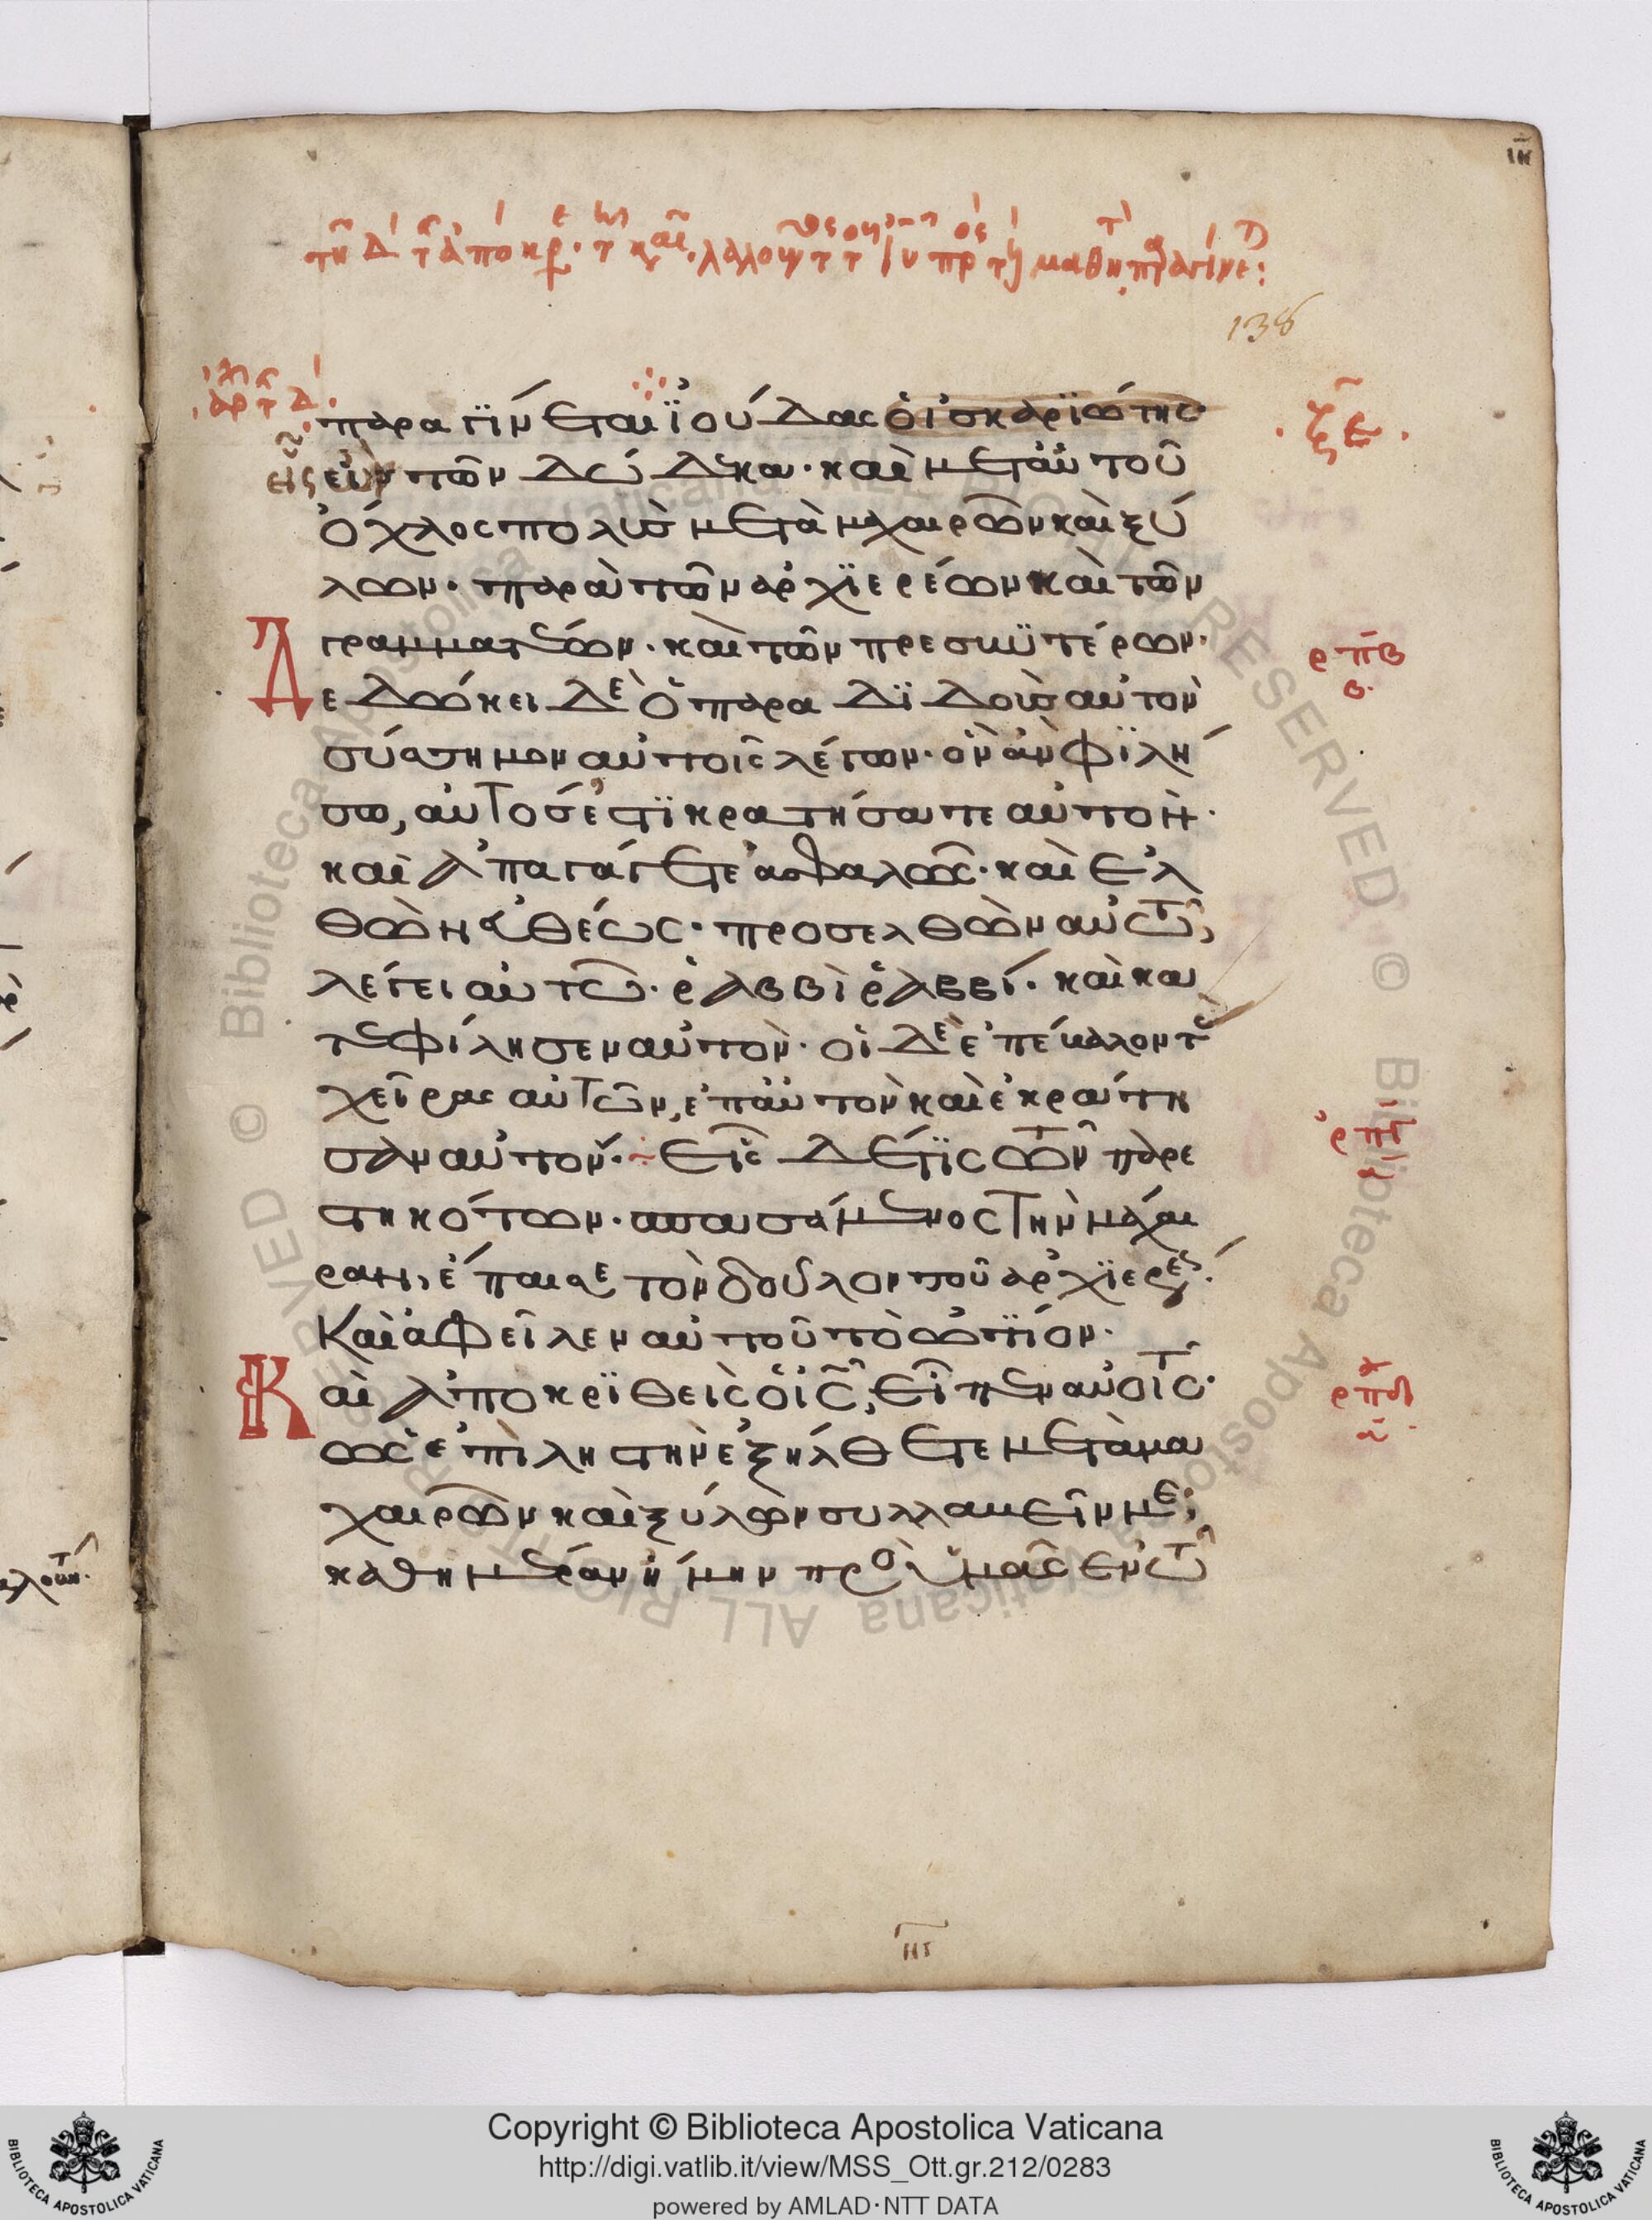 138
παραγίνεται ϊούδας ὁ ἰσκαρϊώτης·
εἷς ὢν τῶν δώδεκα· καὶ μετ' αὐτοῦ
ὄχλος πολὺς μετὰ μαχαιρῶν καὶ ξύ
λων· παρὰ τῶν ἀρχϊερέων καὶ τῶν
γραμματέων· καὶ τῶν πρεσβϋτέρων·
Δεδώκει δὲ ὁ παραδϊδοὺς αὐτὸν
σύσσημον αὐτοῖς λέγων· ὃν ἂν φϊλή
σω, αὐτός ἐστϊ κρατήσατε αὐτὸν·
καὶ ἀπαγάγετε ἀσφαλῶς· καὶ ἐλ
θὼν εὐθέως· προσελθὼν αὐτῶ,
λέγει αὐτῶ· ῥαββὶ ῥαββί· καὶ κα
τεφίλησεν αὐτὸν· οἱ δὲ ἐπέβαλον τὰς
χεῖρας αὐτῶν, ἐπ' αὐτὸν καὶ ἐκράτη
σαν αὐτόν· εἷς δέ τϊς τῶν παρε
στηκότων· σπασάμενος τὴν μάχαι
ραν, ἔπαισε τὸν δοῦλον τοῦ ἀρχϊερέως·
Καὶ ἀφεῖλεν αὐτοῦ τὸ ὠτϊόν·
Καὶ ἀποκρϊθεὶς ὁ ἰς, εἶπεν αὐτοῖς·
ὡς ἐπὶ ληστὴν ἐξήλθετε μετὰ μα
χαιρῶν καὶ ξύλων συλλαβεῖν με;
καθ' ημέραν ἤμην πρὸς ὑμᾶς ἐν τῶ
ξε
ρπβ
β
ρπγ
ρπδ
Copyright © Biblioteca Apostolica Vaticana
http://digi.vatlib.it/view/MSS_Ott.gr.212/0283
powered by AMLAD·NTT DATA